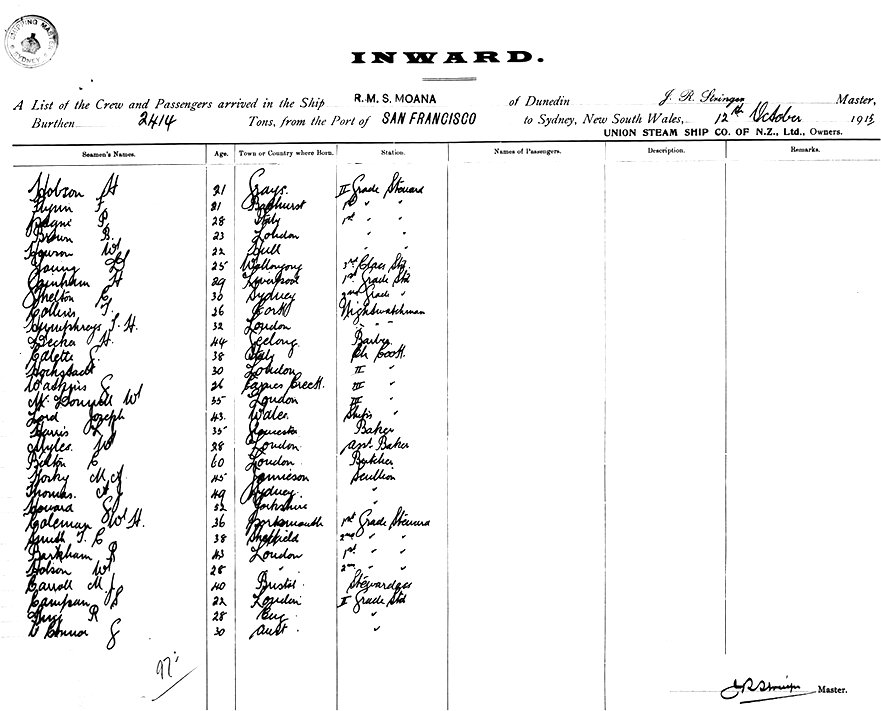 SHIPPING MASTER SYDNEY
INWARD.
A List of the Crew and Passengers arrived in the Ship R.M.S. MOANA of Dunedin J. R. Stringer Master,
Burthen 2414 Tons, from the Port of SAN FRANCISCO to Sydney, New South Wales, 12th October 1913
UNION STEAM SHIP CO. OF N.Z., Ltd., Owners.
Seamen's Names. Age. Town or Country where Born. Station. Names of Passengers. Description. Remarks.
Hobson H 21 Grays. II Grade Steward
Flynn F 21 Bathurst 1st " "
P. 28 Italy 1st " "
Brown B. 23 London " "
W 22 Hull " "
Young 25 Wollongong 3rd Class Std.
H 29 Liverpool 1st Grade Std
Shelton C 30 Sydney 2nd Grade "
Collins T. 26 Cork Nightwatchman
Humphreys T. H. 32 London " "
Decka H. 44 Geelong Barber
Calette G. 38 Italy Ch Cook.
30 London II "
Watkins G 26 Creek. III "
McDonnell W 35 London III "
Lord Joseph 43. Wales. Ship's "
Harris 35 Gloucester Baker
Myles. W 28 London asst Baker
C 60 London Butcher
M J 45 Jamieson Scullion
Thomas. A J 49 Sydney "
Howard G 32 Yorkshire "
Coleman W H. 36 Portsmouth 1st Grade Steward
Smith T. C 38 Sheffield 2nd " "
Barkham R 43 London 1st " "
Hobson W 28 " 2nd " "
Carroll M J 40 Bristol Stewardess
22 London II Grade Std
R 28 Eng "
O'Connor G 30 Aust "
97
J R Stringer Master.